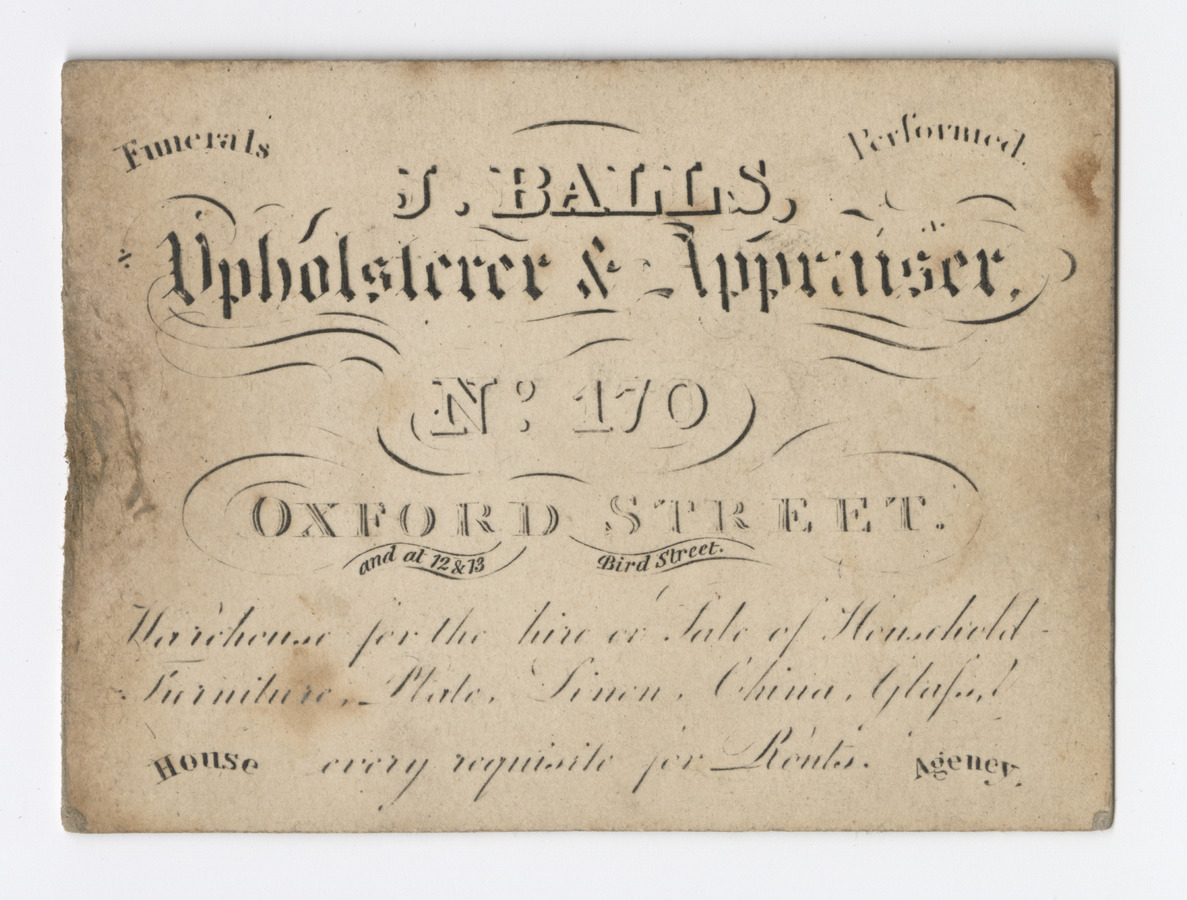 Funerals Performed.
J. BALLS,
Upholsterer & Appraiser,
No. 170
OXFORD STREET.
and at 12 & 13 Bird Street.
Warehouse for the hire or Sale of Household
Furniture, Plate, Linen, China, Glaſs,
every requisite for Routs.
House Agency.